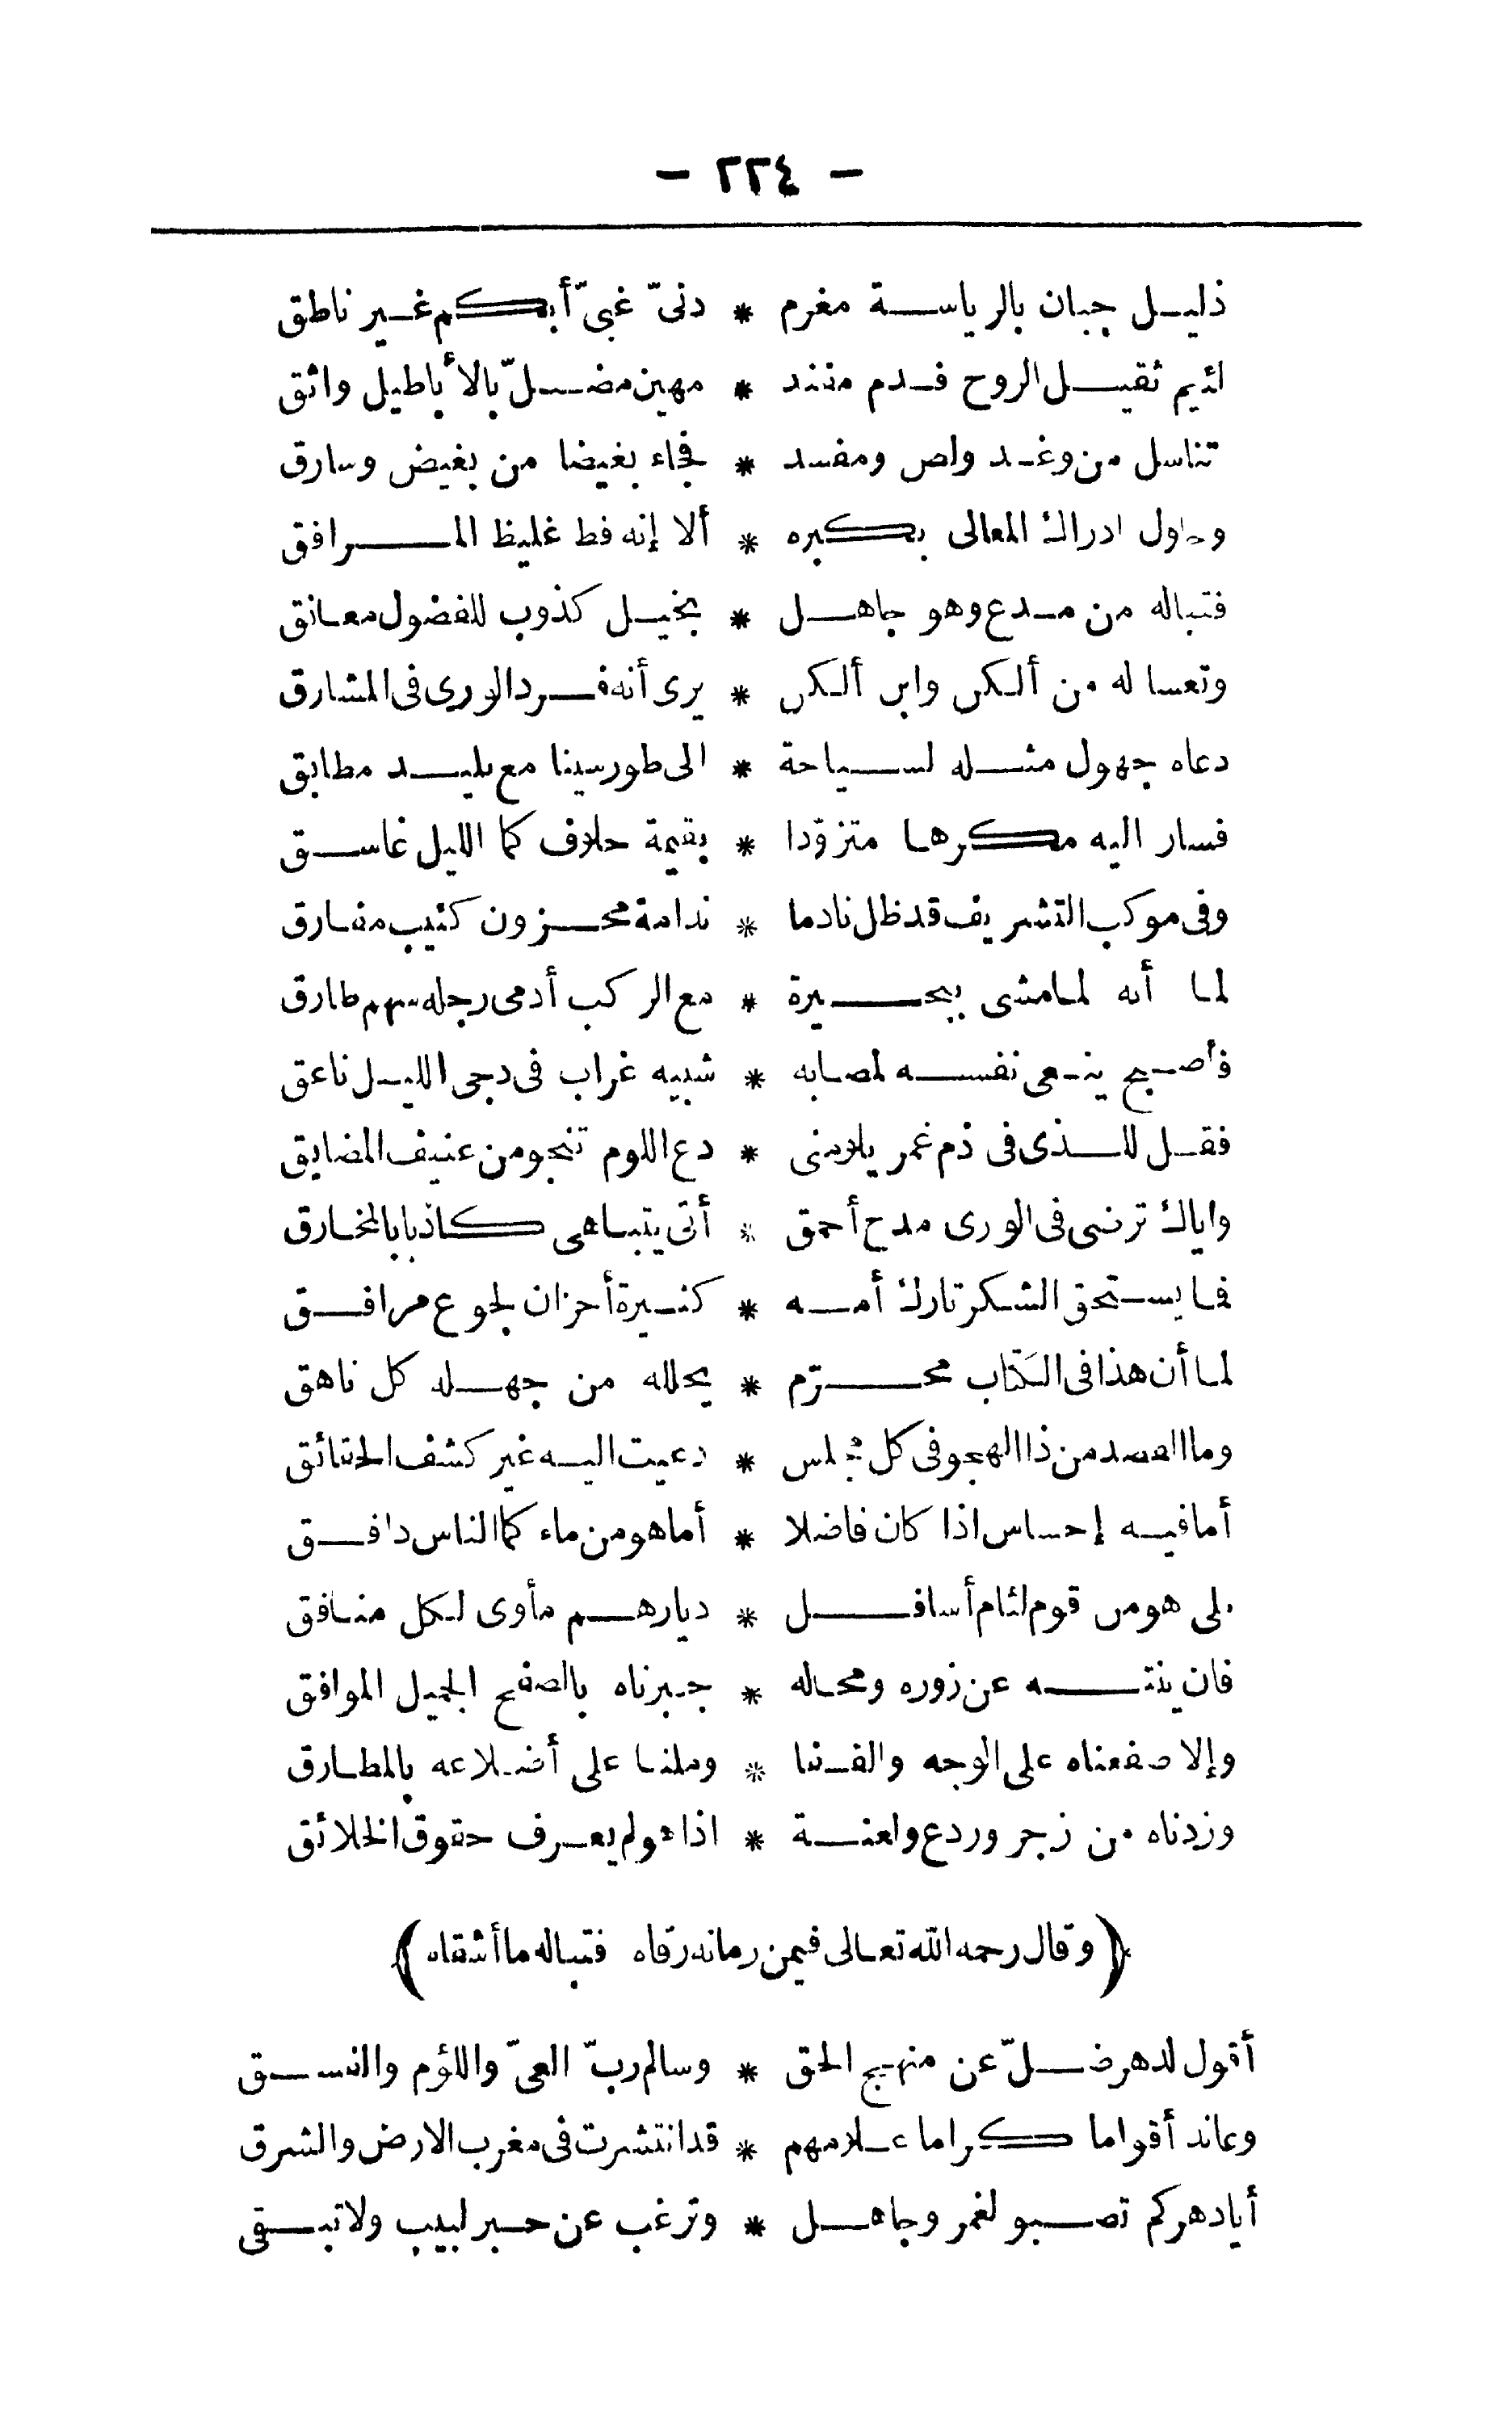 - ٢٢٤ -
ذليل جبان بالرياسة مغرم * دنىّ غبىّ أبكم غير ناطق
لئيم ثقيل الروح فدم مفند * مهين مضلّ بالأباطيل واثق
تناسل من وغد ولص ومفسد * فجاء بغيضا من بغيض وسارق
وحاول ادراك المعالى بكبره * ألا إنه فط غليظ المرافق
فتباله من مدع وهو جاهل * بخيل كذوب للفضول معانق
وتعسا له من ألكن وابن ألكن * يرى أنه فرد الورى فى المشارق
دعاه جهول مثله لسياحة * الى طورسينا مع بليد مطابق
فسار اليه مكرها متزوّدا * بقيمة حلاوف كما الليل غاسق
وفى موكب التشريف قد ظل نادما * ندامة محزون كئيب مفارق
لما أنه لما مشى بحيرة * مع الركب أدمى رجله سهم طارق
فأصبح ينعى نفسه لمصابه * شبيه غراب فى دجى الليل ناعق
فقل للذى فى ذم غمر يلاومنى * دع اللوم تنجو من عنيف المضايق
واياك ترضى فى الورى مدح أحمق * أتى يتباهى كاذبا بالمخارق
فما يستحق الشكر تارك أمه * كثيرة أحزان لجوع مرافق
لما أن هذا فى الكتاب محرّم * يحلله من جهله كل ناهق
وما القصد من ذا الهجو فى كل مجلس * دعيت اليه غير كشف الحقائق
أما فيه إحساس اذا كان فاضلا * أما هو من ماء كما الناس دافق
بلى هو من قوم لئام أسافل * ديارهم مأوى لكل منافق
فان ينته عن زوره ومحاله * جبرناه بالصفح الجميل الموافق
وإلا صفعناه على الوجه والقفا * وملنا على أضلاعه بالمطارق
وزدناه من زجر وردع ولعنة * اذا هو لم يعرف حقوق الخلائق
﴿ وقال رحمه الله تعالى فيمن زمانه رقاه فتباله ما أشقاه ﴾
أقول لدهر ضلّ عن منهج الحق * وسالم ربّ العىّ واللؤم والفسق
وعاند أقواما كراما علامهم * قد انتشرت فى مغرب الارض والشرق
أيادهر كم تصبو لغمر وجاهل * وترغب عن حبر لبيب ولا تبقى